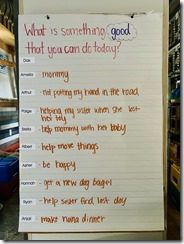 What is something good
that you can do today?
Amelia mommy
Arthur not putting my hand in the road
helping my sister when she lost
her toy
help mommy with her baby
Albert help move things
be happy
Hannah get a new dog bagel
Ryan help sister find lost day
Angel make nana dinner